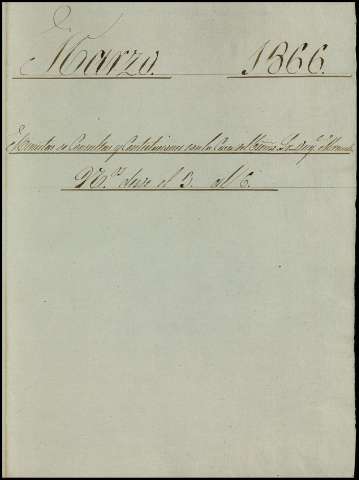 Marzo. 1866.
Minutas de Consultas y Contestaciones con la Casa del Exmo. Sr. Duq.e
N.os desde el 3. al 6.